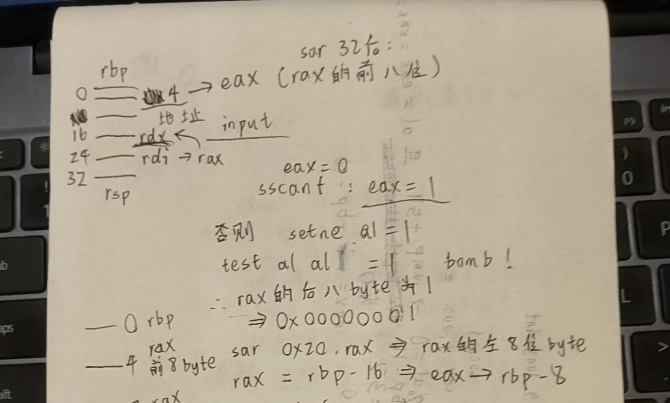 sar 32后:
rbp
0 4 → eax (rax的前八位)
地址
16 rdx ← input
24 rdi → rax
32
rsp
eax = 0
sscanf : eax = 1
否则 setne al = 1
test al al = 1 bomb!
∴ rax的后八byte为1
0 rbp ⇒ 0x00000001
4 rax 前8byte
sar 0x20. rax ⇒ rax的左8位byte
rax = rbp-16 ⇒ eax → rbp-8
rax